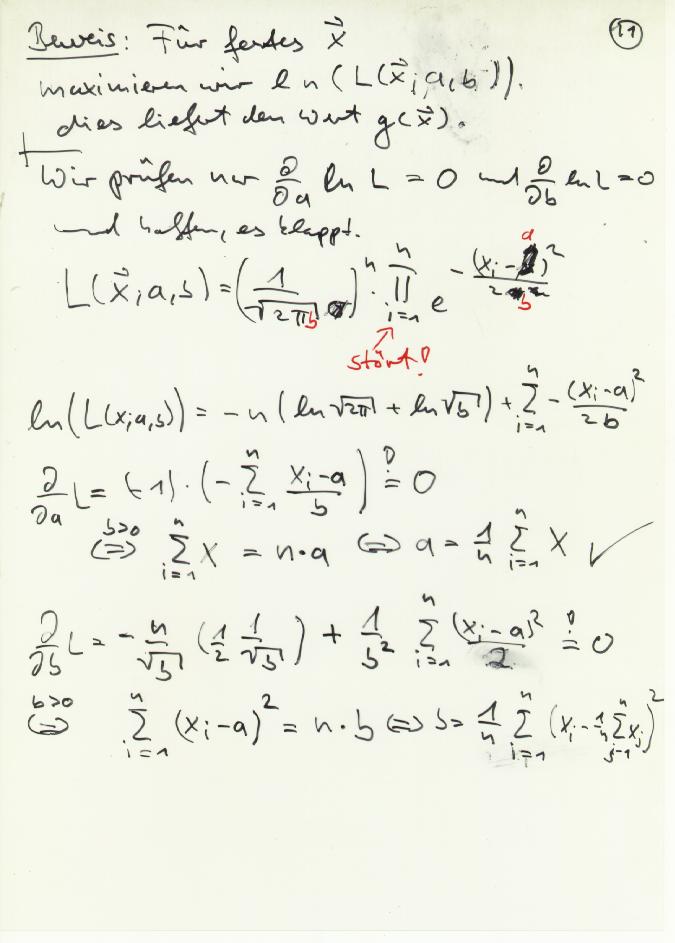 Beweis: Für festes x⃗ (11)
maximieren wir ln(L(x⃗; a, b)).
dies liefert den Wert g(x⃗).
Wir prüfen nur ∂/∂a ln L = 0 und ∂/∂b ln L = 0
und hoffen, es klappt.
L(x⃗; a, b) = (1/√(2πb))^n · ∏_{i=1}^{n} e^{-(x_i - a)²/(2b)}
stört!
ln(L(x; a, b)) = -n (ln √(2π) + ln √b) + ∑_{i=1}^{n} - (x_i - a)²/(2b)
∂/∂a L = (-1) · (- ∑_{i=1}^{n} (x_i - a)/b) =! 0
⇔ (b>0) ∑_{i=1}^{n} x = n · a ⇔ a = 1/n ∑_{i=1}^{n} x ✓
∂/∂b L = - n/√b (1/2 1/√b) + 1/b² ∑_{i=1}^{n} (x_i - a)²/2 =! 0
⇔ (b>0) ∑_{i=1}^{n} (x_i - a)² = n · b ⇔ b = 1/n ∑_{i=1}^{n} (x_i - 1/n ∑_{j=1}^{n} x_j)²